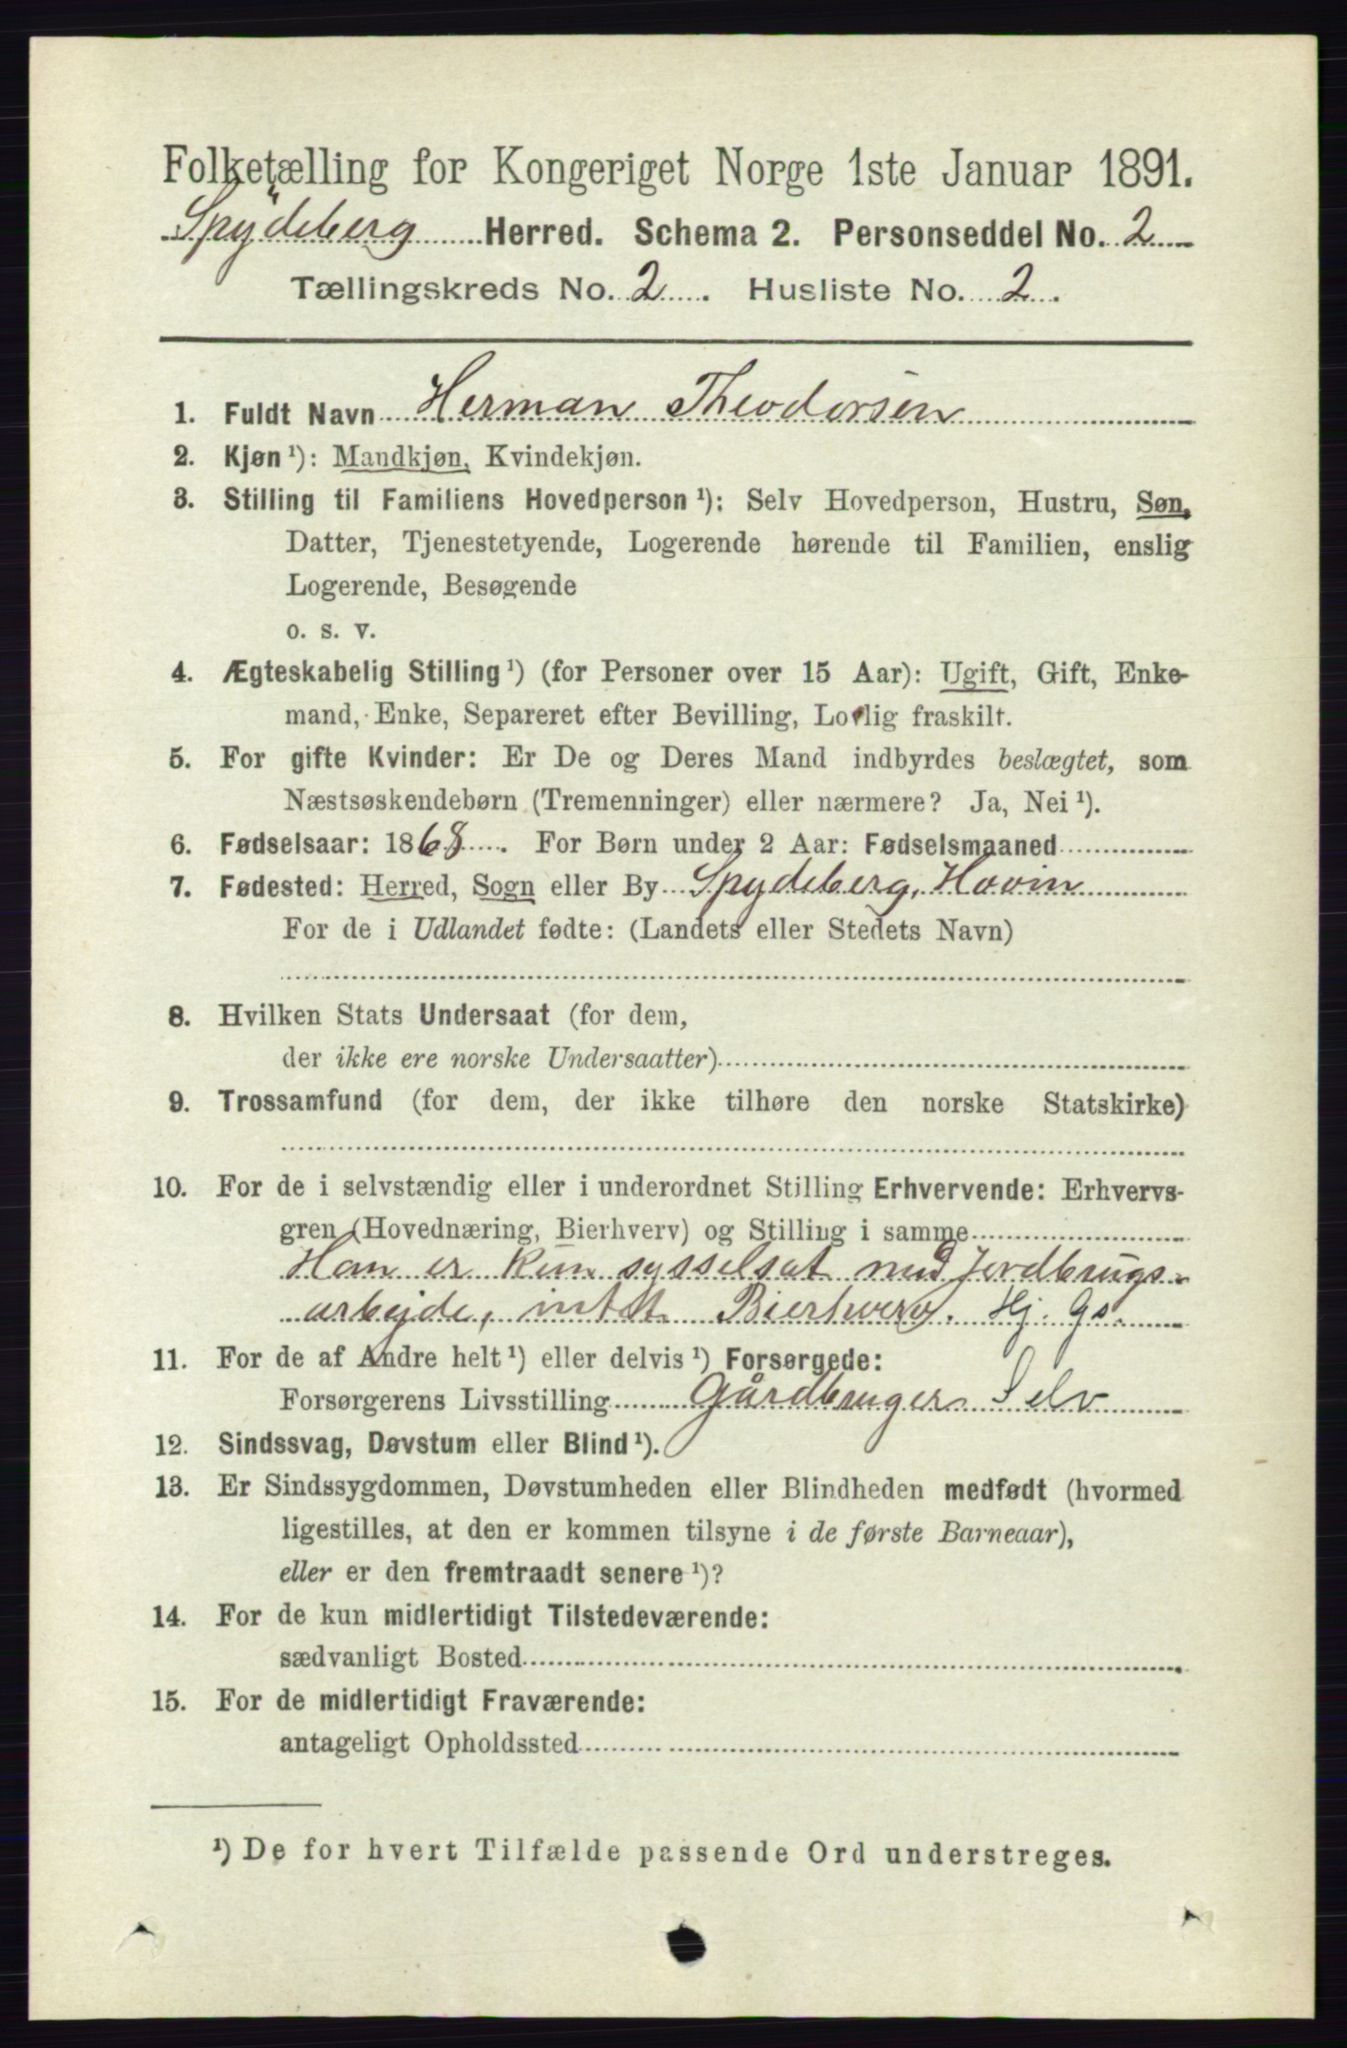 Folketælling for Kongeriget Norge 1ste Januar 1891.
Spydeberg Herred. Schema 2. Personseddel No. 2
Tællingskreds No. 2. Husliste No. 2.
1. Fuldt Navn Herman Theodorsen
2. Kjøn ¹): Mandkjøn, Kvindekjøn.
3. Stilling til Familiens Hovedperson ¹): Selv Hovedperson, Hustru, Søn,
Datter, Tjenestetyende, Logerende hørende til Familien, enslig
Logerende, Besøgende
o. s. v.
4. Ægteskabelig Stilling ¹) (for Personer over 15 Aar): Ugift, Gift, Enke-
mand, Enke, Separeret efter Bevilling, Lovlig fraskilt.
5. For gifte Kvinder: Er De og Deres Mand indbyrdes beslægtet, som
Næstsøskendebørn (Tremenninger) eller nærmere? Ja, Nei ¹).
6. Fødselsaar: 1868. For Børn under 2 Aar: Fødselsmaaned
7. Fødested: Herred, Sogn eller By Spydeberg, Hovin
For de i Udlandet fødte: (Landets eller Stedets Navn)
8. Hvilken Stats Undersaat (for dem,
der ikke ere norske Undersaatter)
9. Trossamfund (for dem, der ikke tilhøre den norske Statskirke)
10. For de i selvstændig eller i underordnet Stilling Erhvervende: Erhvervs-
gren (Hovednæring, Bierhverv) og Stilling i samme
Han er kun sysselsat med Jordbrugs-
arbejde, intet Bierhverv. Hj. Gs.
11. For de af Andre helt ¹) eller delvis ¹) Forsørgede:
Forsørgerens Livsstilling Gårdbruger Selv
12. Sindssvag, Døvstum eller Blind ¹).
13. Er Sindssygdommen, Døvstumheden eller Blindheden medfødt (hvormed
ligestilles, at den er kommen tilsyne i de første Barneaar),
eller er den fremtraadt senere ¹)?
14. For de kun midlertidigt Tilstedeværende:
sædvanligt Bosted
15. For de midlertidigt Fraværende:
antageligt Opholdssted
¹) De for hvert Tilfælde passende Ord understreges.